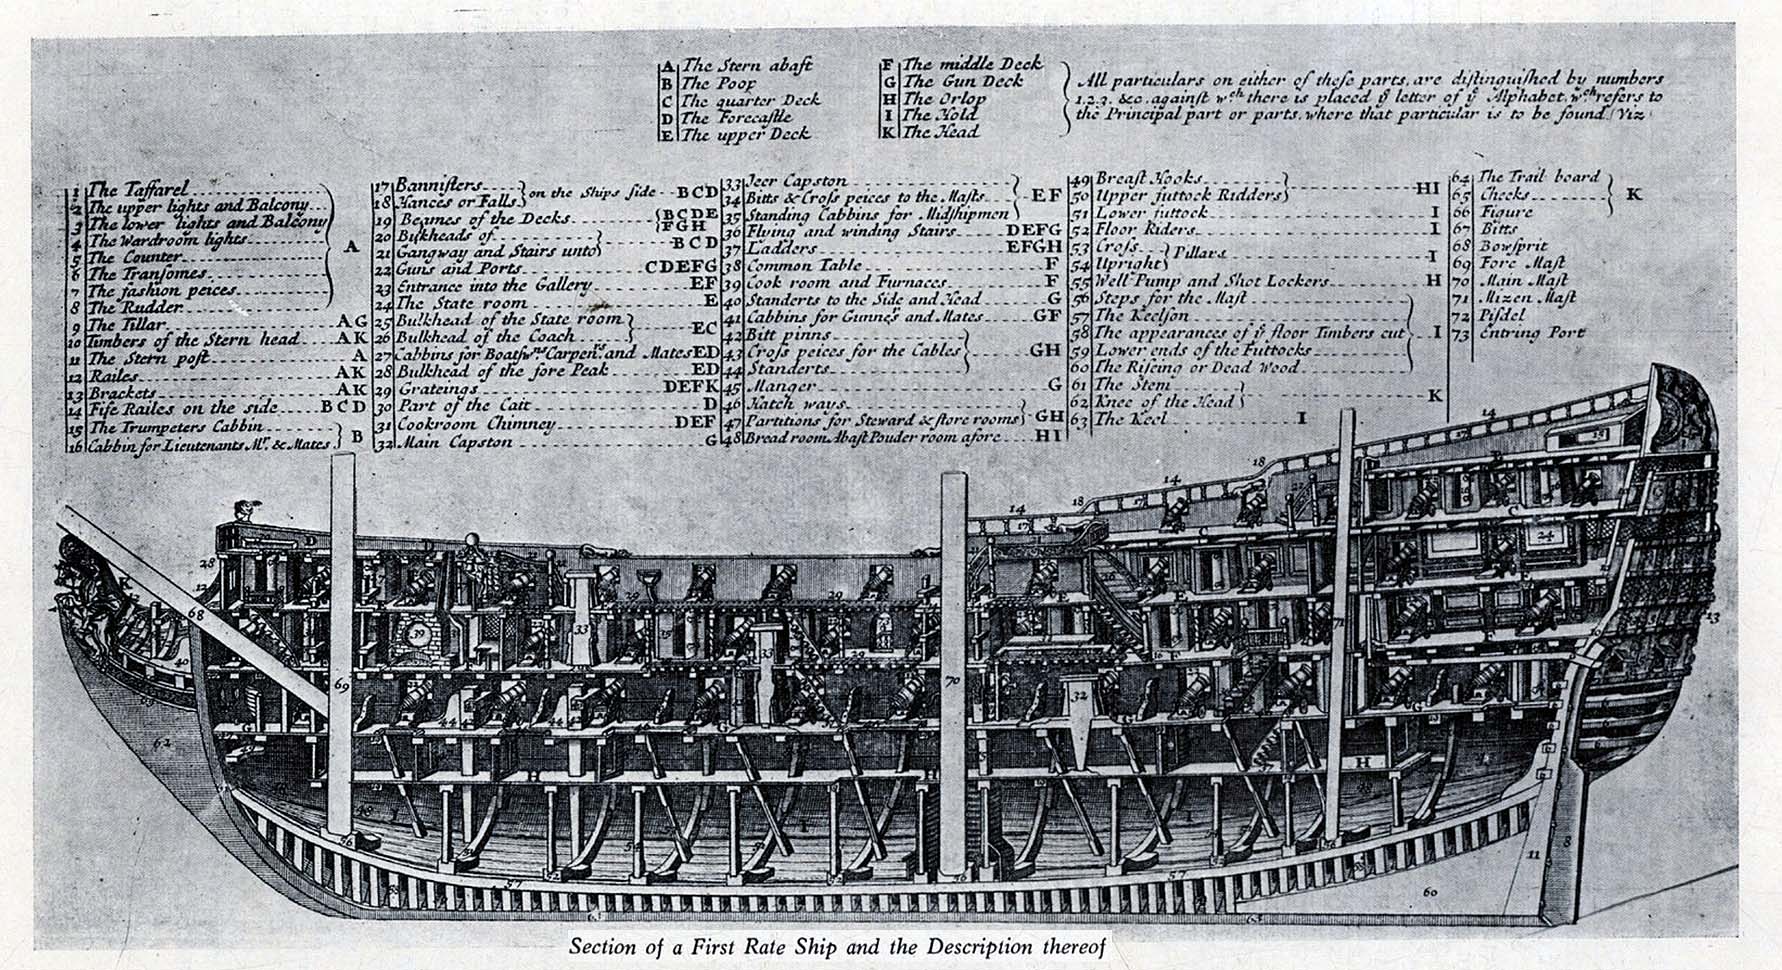 A The Stern abaft
B The Poop
C The quarter Deck
D The Forecastle
E The upper Deck
F The middle Deck
G The Gun Deck
H The Orlop
I The Hold
K The Head
All particulars on either of these parts, are distinguished by numbers
1.2.3. &c. against wch there is placed ye letter of ye Alphabet, wch refers to
the Principal part or parts, where that particular is to be found (Viz
1 The Taffarel
2 The upper lights and Balcony
3 The lower lights and Balcony
4 The Wardroom lights
5 The Counter
6 The Transomes
7 The fashion peices
A
8 The Rudder
9 The Tillar AG
10 Timbers of the Stern head AK
11 The Stern post A
12 Railes AK
13 Brackets AK
14 Fife Railes on the side BCD
15 The Trumpeters Cabbin
16 Cabbin for Lieutenants Mr. & Mates
B
17 Bannisters
18 Hances or Falls
on the Ships side BCD
19 Beames of the Decks BCDE
FGH
20 Bulkheads of
21 Gangway and Stairs unto
BCD
22 Guns and Ports CDEFG
23 Entrance into the Gallery EF
24 The State room E
25 Bulkhead of the State room
26 Bulkhead of the Coach
EC
27 Cabbins for Boatswns Carpenrs. and Mates ED
28 Bulkhead of the fore Peak ED
29 Grateings DEFK
30 Part of the Catt D
31 Cookroom Chimney DEF
32 Main Capston G
33 Jeer Capston
34 Bitts & Cross peices to the Masts
35 Standing Cabbins for Midshipmen
EF
36 Flying and winding Stairs DEFG
37 Ladders EFGH
38 Common Table F
39 Cook room and Furnaces F
40 Standerts to the Side and Head G
41 Cabbins for Gunners and Mates GF
42 Bitt pinns
43 Cross peices for the Cables
44 Standerts
GH
45 Manger G
46 Hatch ways
47 Partitions for Steward & store rooms
GH
48 Bread room Abaft Pouder room afore HI
49 Breast Hooks
50 Upper futtock Ridders
HI
51 Lower futtock I
52 Floor Riders I
53 Cross
54 Upright
Pillars I
55 Well Pump and Shot Lockers H
56 Steps for the Mast
57 The Keelson
58 The appearances of ye floor Timbers cut
59 Lower ends of the Futtocks
60 The Riseing or Dead Wood
I
61 The Stem
62 Knee of the Head
K
63 The Keel I
64 The Trail board
65 Cheeks
66 Figure
K
67 Bitts
68 Bowsprit
69 Fore Mast
70 Main Mast
71 Mizen Mast
72 Pisdel
73 Entring Port
14
18
14
18
14
17
24
28
12
K
68
39
33
33
29
29
40
69
70
71
32
13
62
H
H
G
8
11
60
57
57
63
63
56
56
Section of a First Rate Ship and the Description thereof